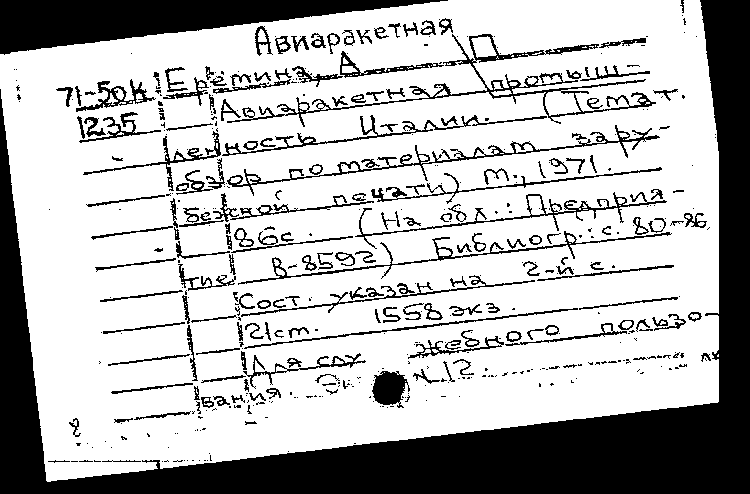 Авиаракетная П
71-50к Еремина, А
1235 Авиаракетная промыш-
ленность Италии. (Темат.
обзор по материалам зару-
бежной печати) М., 1971.
86с. (На обл.: Предприя-
тие В-8592) Библиогр.: с. 80-86
Сост. указан на 2-й с.
21см. 1558 экз.
Для служебного пользо-
вания. Эк № 12.
8